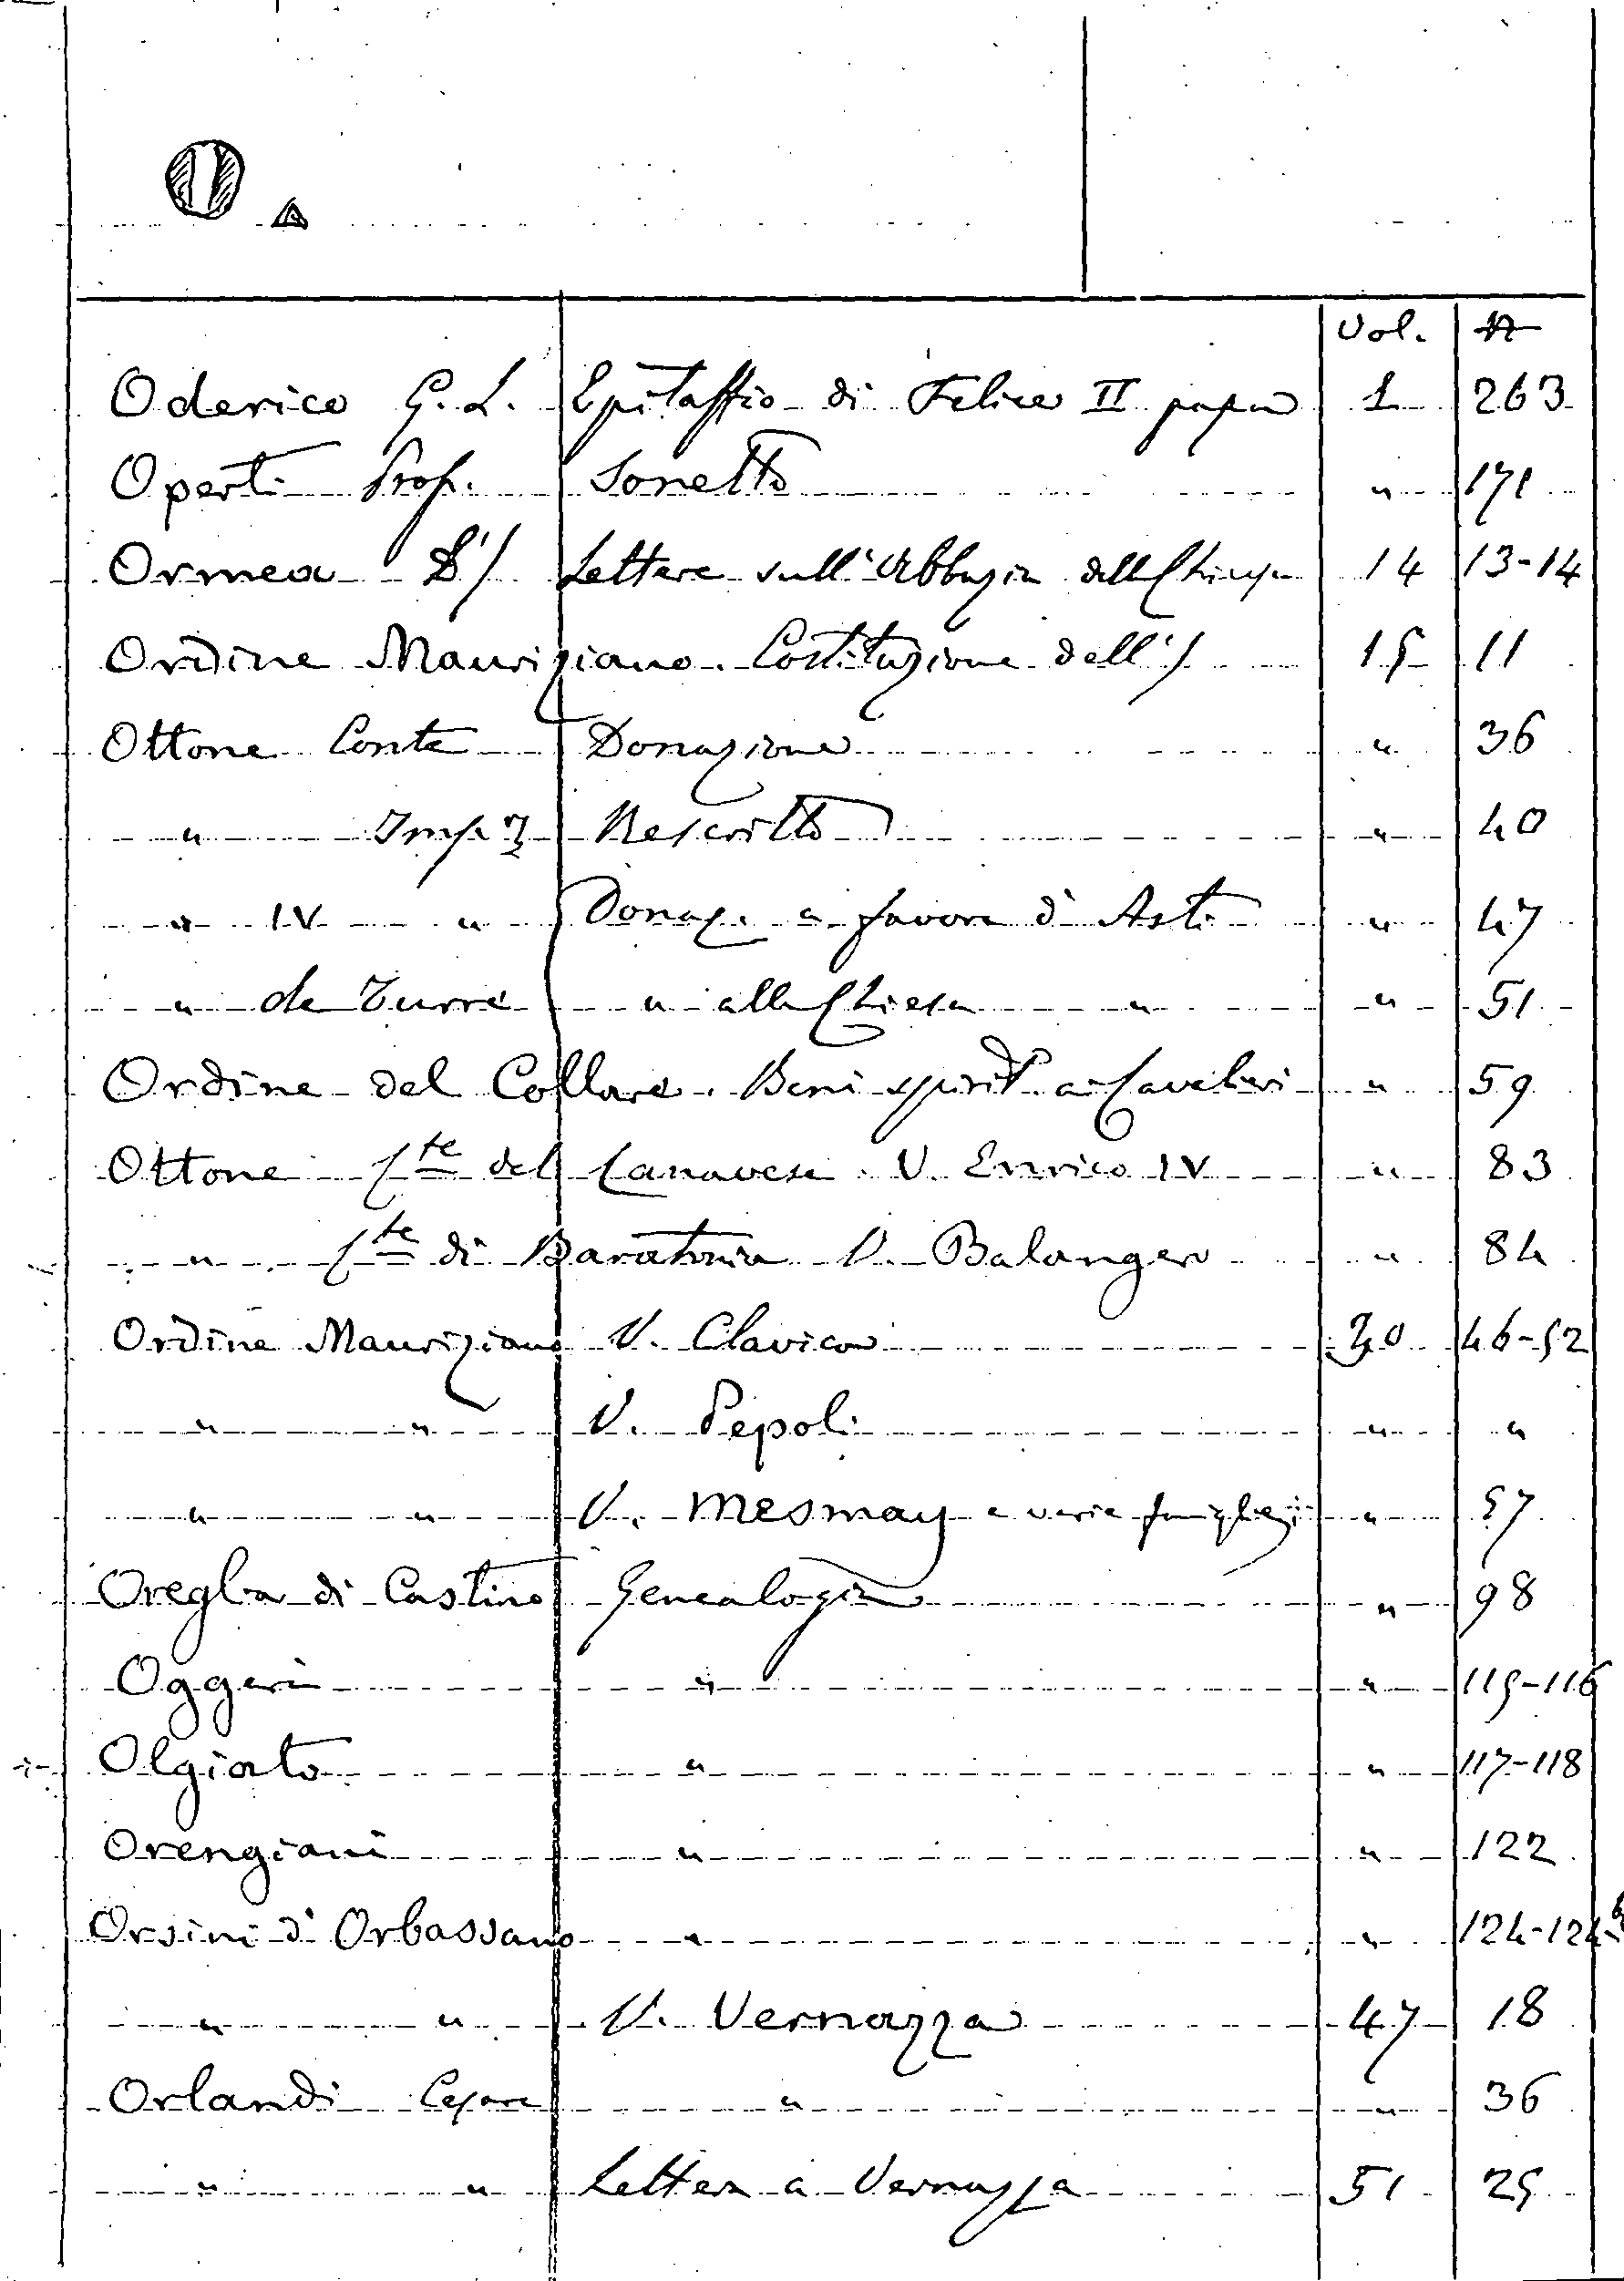 O.
Vol. n
Oderico G. L. Epitaffio di Felice II papa 1 263
Operti Prof. Sonetto " 171
Ormea D'/ Lettere sull'Abbazia della Chiusa 14 13-14
Ordine Mauriziano. Costituzione dell'/ 15 11
Ottone Conte Donazione " 36
" Imp. 3 Rescritto " 40
" IV " Donaz. a favore d'Asti " 47
" de Turre " alla Chiesa " " 51
Ordine del Collare. Beni spirit. a' Cavalieri " 59
Ottone Cte del Canavese. V. Enrico IV " 83
" Cte di Baratonia V. Balangero " 84
Ordine Mauriziano V. Clavica 30 46-52
" " V. Pepoli " "
" " V. Mesmay e varie famiglie " 57
Oreglia di Castino Genealogia " 98
Oggeri " " 115-116
Olgiato " " 117-118
Orengiani " " 122
Orsini d'Orbassano " " 124-124
" " V. Vernazza 47 18
Orlandi Cesare " " 36
" " Lettera a Vernazza 51 25